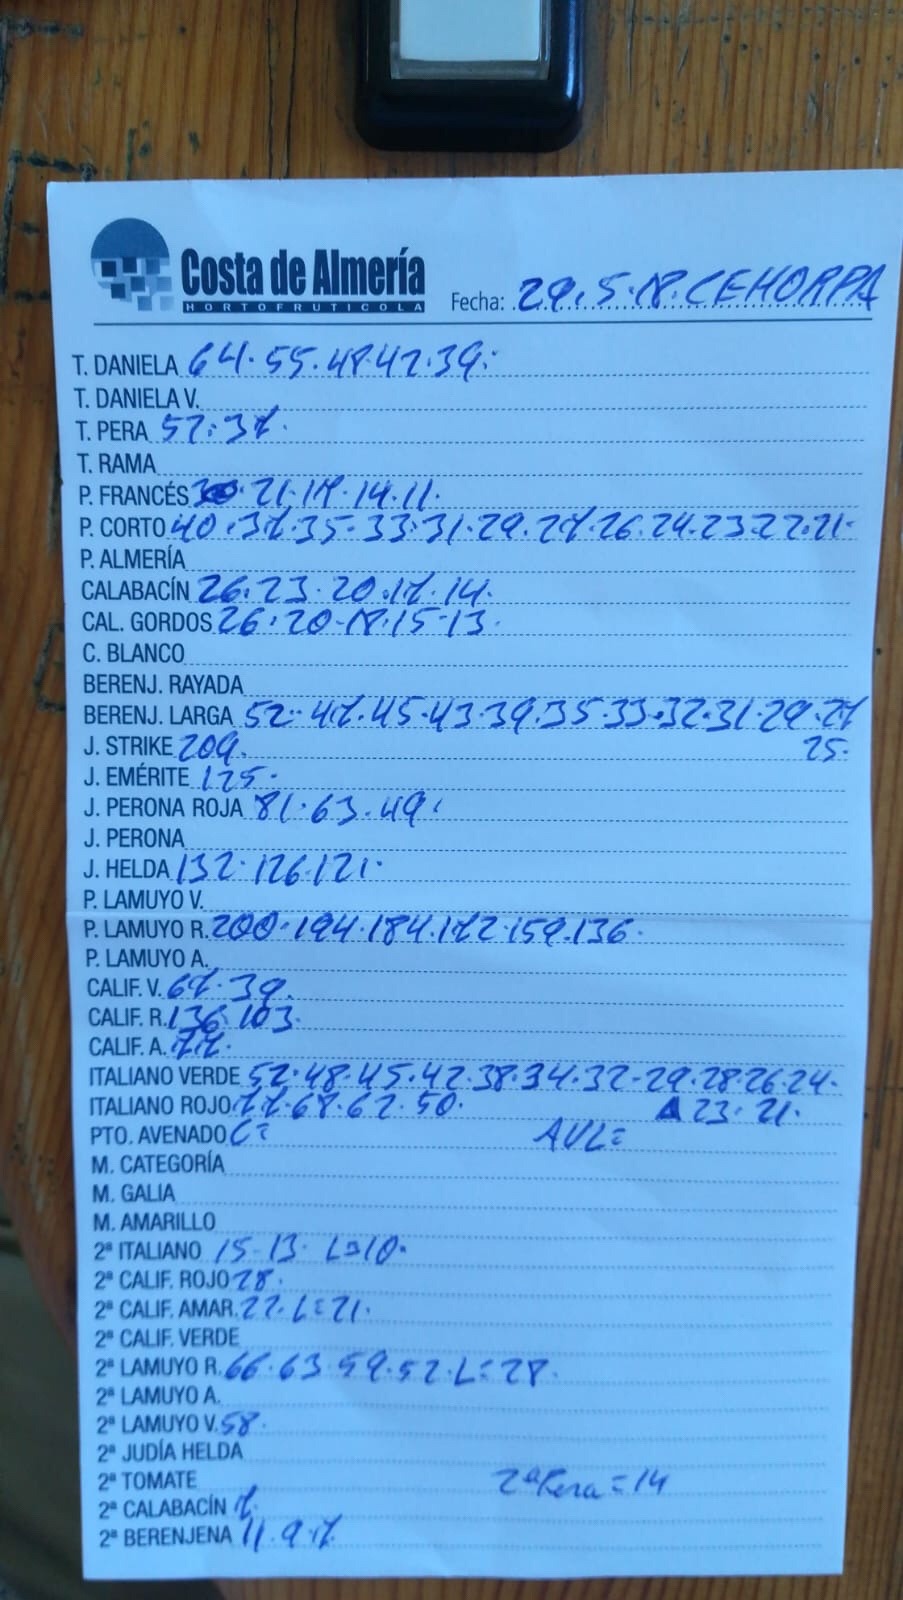 Costa de Almería
HORTOFRUTICOLA
Fecha: 29.5.18. CEHORPA
T. DANIELA 64. 55. 48. 42. 39.
T. DANIELA V.
T. PERA 52. 37.
T. RAMA
P. FRANCÉS 21. 18. 14. 11.
P. CORTO 40. 37. 35. 33. 31. 29. 27. 26. 24. 23. 22. 21.
P. ALMERÍA
CALABACÍN 26. 23. 20. 17. 14.
CAL. GORDOS 26. 20. 18. 15. 13.
C. BLANCO
BERENJ. RAYADA
BERENJ. LARGA 52. 47. 45. 43. 39. 35. 33. 32. 31. 29. 27
J. STRIKE 209. 25.
J. EMÉRITE 125.
J. PERONA ROJA 81. 63. 49.
J. PERONA
J. HELDA 132. 126. 121.
P. LAMUYO V.
P. LAMUYO R. 200. 194. 184. 172. 159. 136.
P. LAMUYO A.
CALIF. V. 67. 39.
CALIF. R. 136. 103.
CALIF. A. 77.
ITALIANO VERDE 52. 48. 45. 42. 38. 34. 32. 29. 28. 26. 24.
ITALIANO ROJO 77. 68. 62. 50. 23. 21.
PTO. AVENADO C= AVL=
M. CATEGORÍA
M. GALIA
M. AMARILLO
2ª ITALIANO 15. 13. L=10.
2ª CALIF. ROJO 28.
2ª CALIF. AMAR. 22. L=21.
2ª CALIF. VERDE
2ª LAMUYO R. 66. 63. 59. 52. L=28.
2ª LAMUYO A.
2ª LAMUYO V. 58.
2ª JUDÍA HELDA
2ª TOMATE 2ª Pera = 14
2ª CALABACÍN 7.
2ª BERENJENA 11. 9. 7.